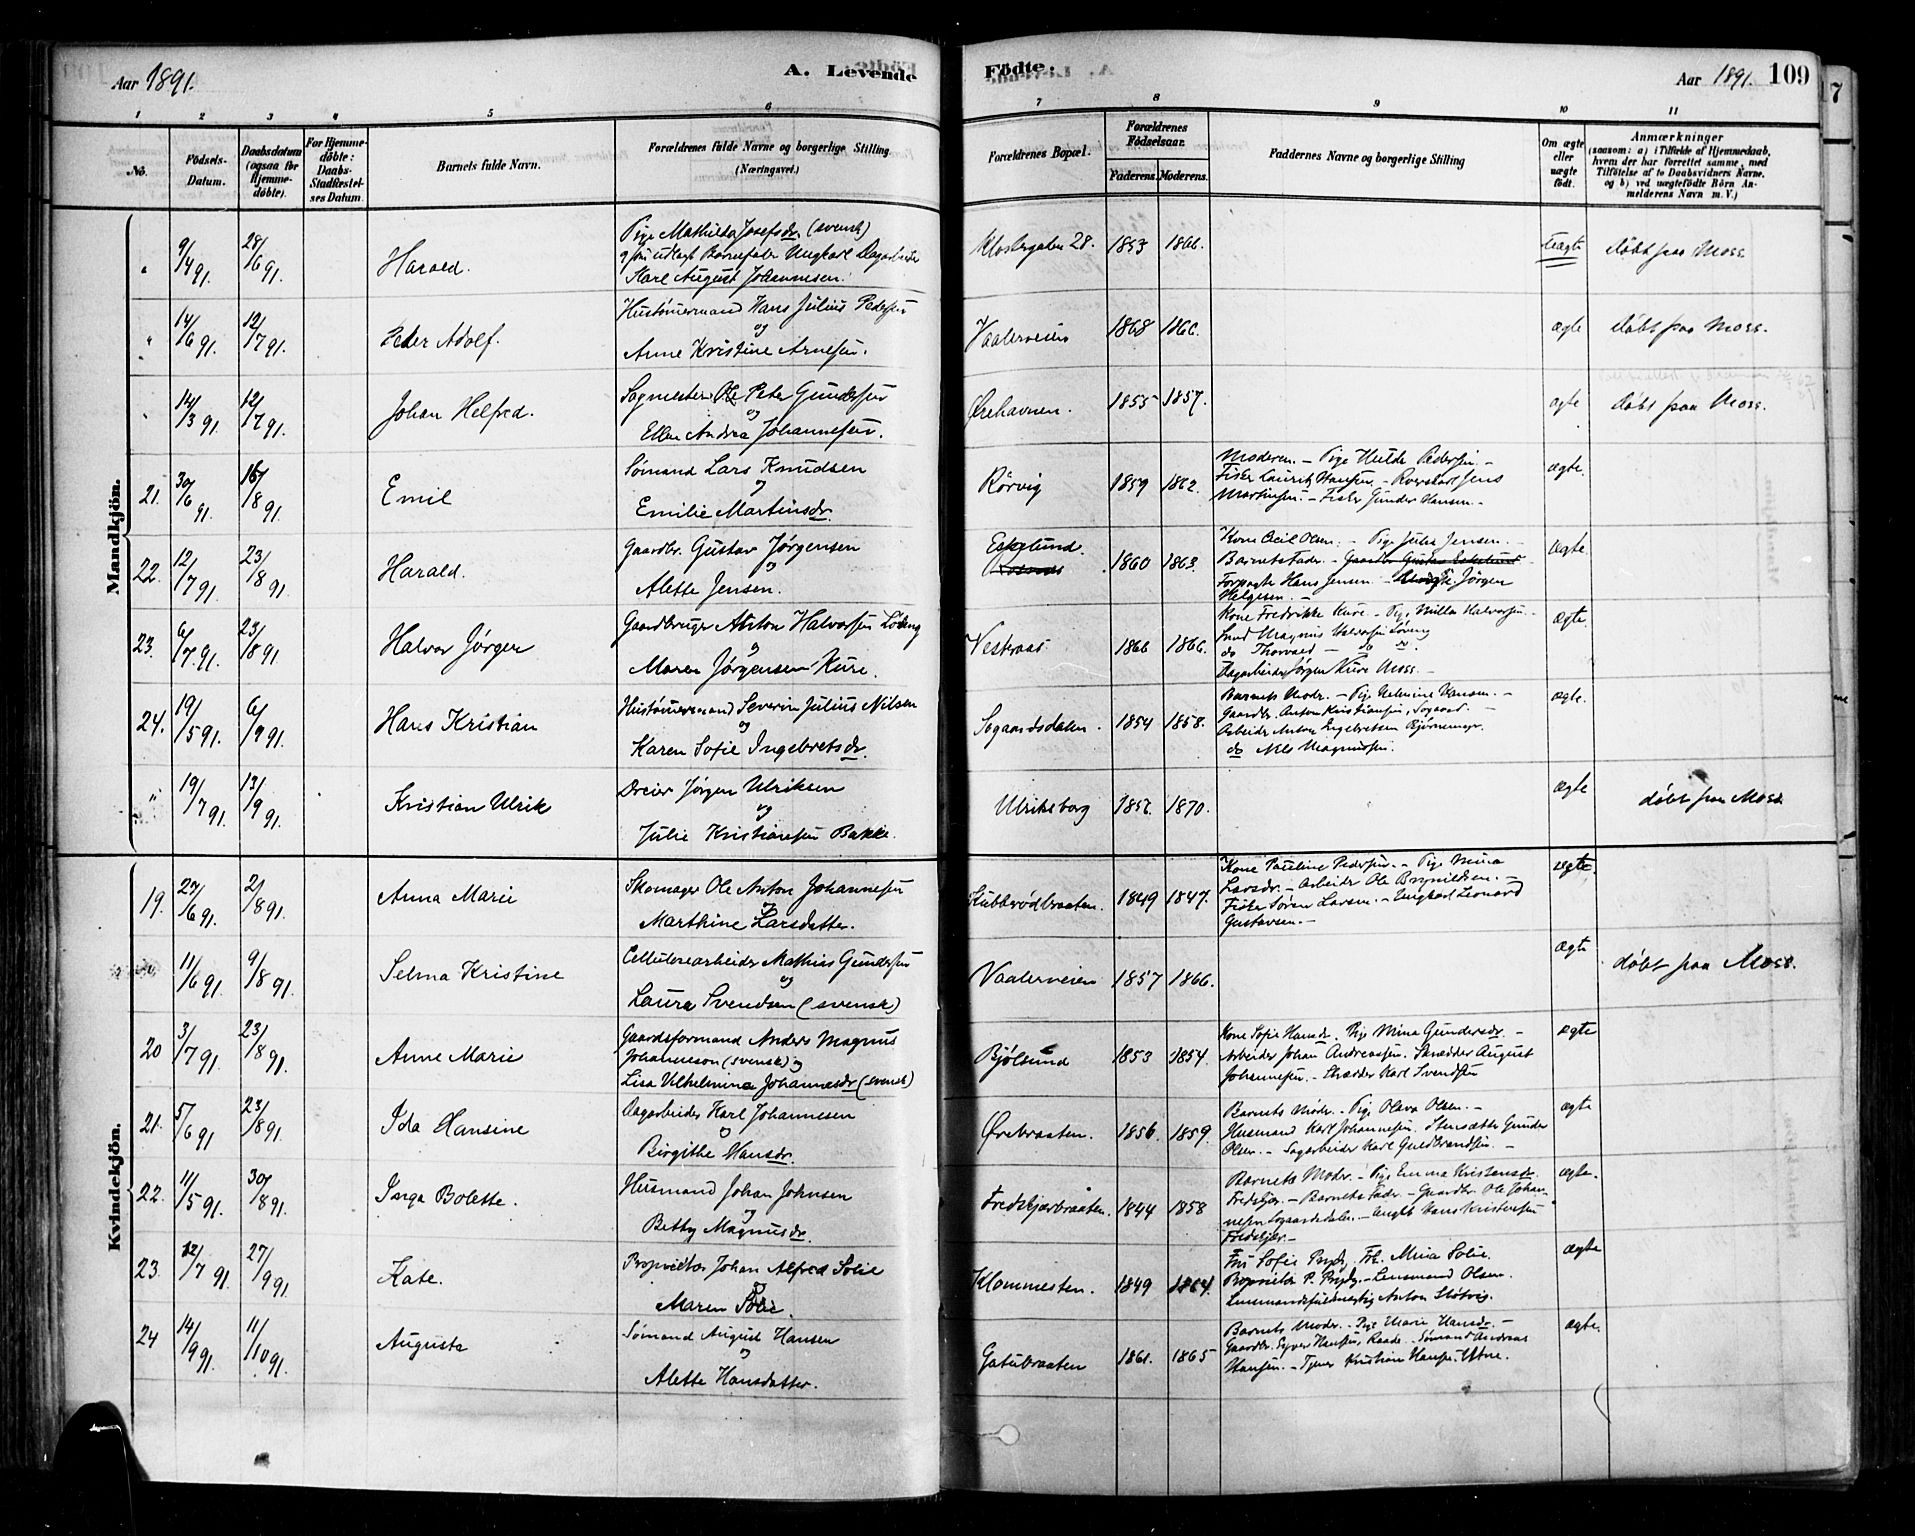 Aar 1891.
A. Levende
Födte.
Aar 1891. 109
1 2 3 4 5 6 7 8 9 10 11
No.
Födsels-Datum.
Daabsdatum (ogsaa for Hjemmedöbte).
For Hjemmedöbte: Daabs-Stadfæstelses Datum.
Barnets fulde Navn.
Forældrenes fulde Navne og borgerlige Stilling. (Næringsvei.)
Forældrenes Bopæl.
Forældrenes Födselsaar.
Faderens. Moderens.
Faddernes Navne og borgerlige Stilling
Om ægte eller uægte födt.
Anmærkninger
(saasom: a) i Tilfælde af Hjemmedaab, hvem der har forrettet samme, med Tilföielse af to Daabsvidners Navne, og b) ved uægtefödte Börn Anmelderens Navn m. V.)
Mandkjön.
" 9/4 91. 28/6 91. Harald.
Pige Mathilda Josefsdr (svensk)
og som udlagt Barnefader Ungkarl Dagarbeider
Karl August Johannesen.
Klostergaten 28. 1853 1866. Uægte döbt paa Moss.
" 14/6 91. 12/7 91. Peder Adolf.
Hustømermand Hans Julius Pedersen
og
Anne Kristine Arnesen.
Vaalerveien 1868 1866. ægte döbt paa Moss.
" 14/3 91. 12/7 91. Johan Helfred.
Sagmester Ole Peter Gundersen
og
Ellen Andrea Johannesen.
Ørehavnen. 1855 1857. ægte döbt paa Moss.
21. 30/6 91. 16/8 91. Emil
Sømand Lars Knudsen
og
Emilie Martinsdr.
Rörvig 1859 1862.
Moderen. – Pige Hulda Pedersen. –
Fisker Lauritz Hansen. – Jens
Martinsen. – Fisker Gunder Hansen. –
ægte.
22. 12/7 91. 23/8 91. Harald.
Gaardbr. Gustav Jørgensen
og
Alette Jensen.
Eskelund. 1860 1863.
Kone Cecil Olsen. – Pige Julie Jensen. –
Barnets Fader. – Gaardbr Gustav Eskelund
Forpagter Hans Jensen – Jörgen
Helgesen. –
ægte.
23. 6/7 91. 23/8 91 Halvor Jørgen
Gaardbruger Anton Halvorsen Löken
og
Maren Jørgensen Kure.
Vestraas 1866 1866.
Kone Fredrikke Kure. – Pige Milla Halvorsen.
Magnus Halvorsen
do Thorvald – do
Dagarbeider Jörgen Kure Moss. –
ægte.
24. 19/5 91. 6/9 91. Hans Kristian
Hustømermand Severin Julius Nilsen
og
Karen Sofie Ingebretsdr.
Sogaardsdalen. 1854 1858.
Barnets Moder. – Pige Helmine Hansen. –
Gaardbr. Anton Kristiansen, Sogaard. –
Arbeider Anton Engebretsen Bjørnemyr.
do Nils Magnussen.
ægte.
" 19/7 91. 13/9 91. Kristian Ulrik
Dreier Jørgen Ulriksen
og
Julie Kristiansen Bakke.
Ulriksborg 1852. 1870. ægte döbt paa Moss.
Kvindekjön.
19. 27/6 91. 2/8 91. Anna Marie
Skomager Ole Anton Johannesen
og
Marthine Larsdatter.
Kubberödbraaten. 1849 1847.
Kone Pauline Pedersen. – Pige Mina
Larsdr. – Arbeider Ole Brynildsen. –
Fisker Sören Larsen. – Ungkarl Leonard
Gustavsen. –
ægte.
11/6 91. 9/8 91. Selma Kristine
Cellulosearbeider Mathias Gundersen
og
Laura Svendsen (svensk)
Vaalerveien 1857 1866. ægte döbt paa Moss.
20 3/7 91. 23/8 91. Anne Marie
Gaardsformand Anders Magnus
Johannesson (svensk) og
Lisa Vilhelmina Johannesdr (svensk)
Bjölsund 1853 1854.
Kone Sofie Hansdr. Pige Mina Gundersdr. –
Arbeider Johan Andreassen. Skrædder August
Johannesen. – Skrædder Karl Svendsen
ægte
21. 5/6 91 23/8 91. Ida Hansine
Dagarbeider Karl Johannesen
og
Birgithe Hansdr.
Ørebraaten. 1856. 1859.
Barnets Moder. – Pige Olava Olsen. –
Husmand Karl Johannesen. Stensætter Gunder
Olsen. – Sagarbeider Karl Guldbrandsen. –
ægte
22. 11/5 91. 30/8 91. Inga Bolette.
Husmand Johan Johnsen
og
Betty Magnusdr.
Fredskjærbraaten. 1844 1858
Barnets Moder. – Pige Emma Kristensdr.
Fredskjær. – Barnets Fader. – Gaardbr. Ole Johan-
nesen Sogaardsdalen. – Ungk Hans Kristensen
Fredskjær. –
ægte.
23. 12/7 91. 27/9 91. Kate.
Proprietær Johan Alfred Solie
og
Maren Solie.
Klommesten. 1849 1864.
Fru Sofie Prydz, Frk. Mina Solie.
Proprietær P. Prydz. – Lensmand Olsen.
Lensmandsfuldmægtig Anton Slötvig.
ægte
24 14/9 91. 11/10 91. Augusta
Sømand August Hansen
og
Alette Hansdatter.
Gatubraaten 1861. 1865
Barnets Moder. – Pige Marie Hansdr. –
Gaardbr. Syver Hansen, Raade. Sømand Andreas
Hansen. – Tjener Kristian Hansen Ytne.
ægte.